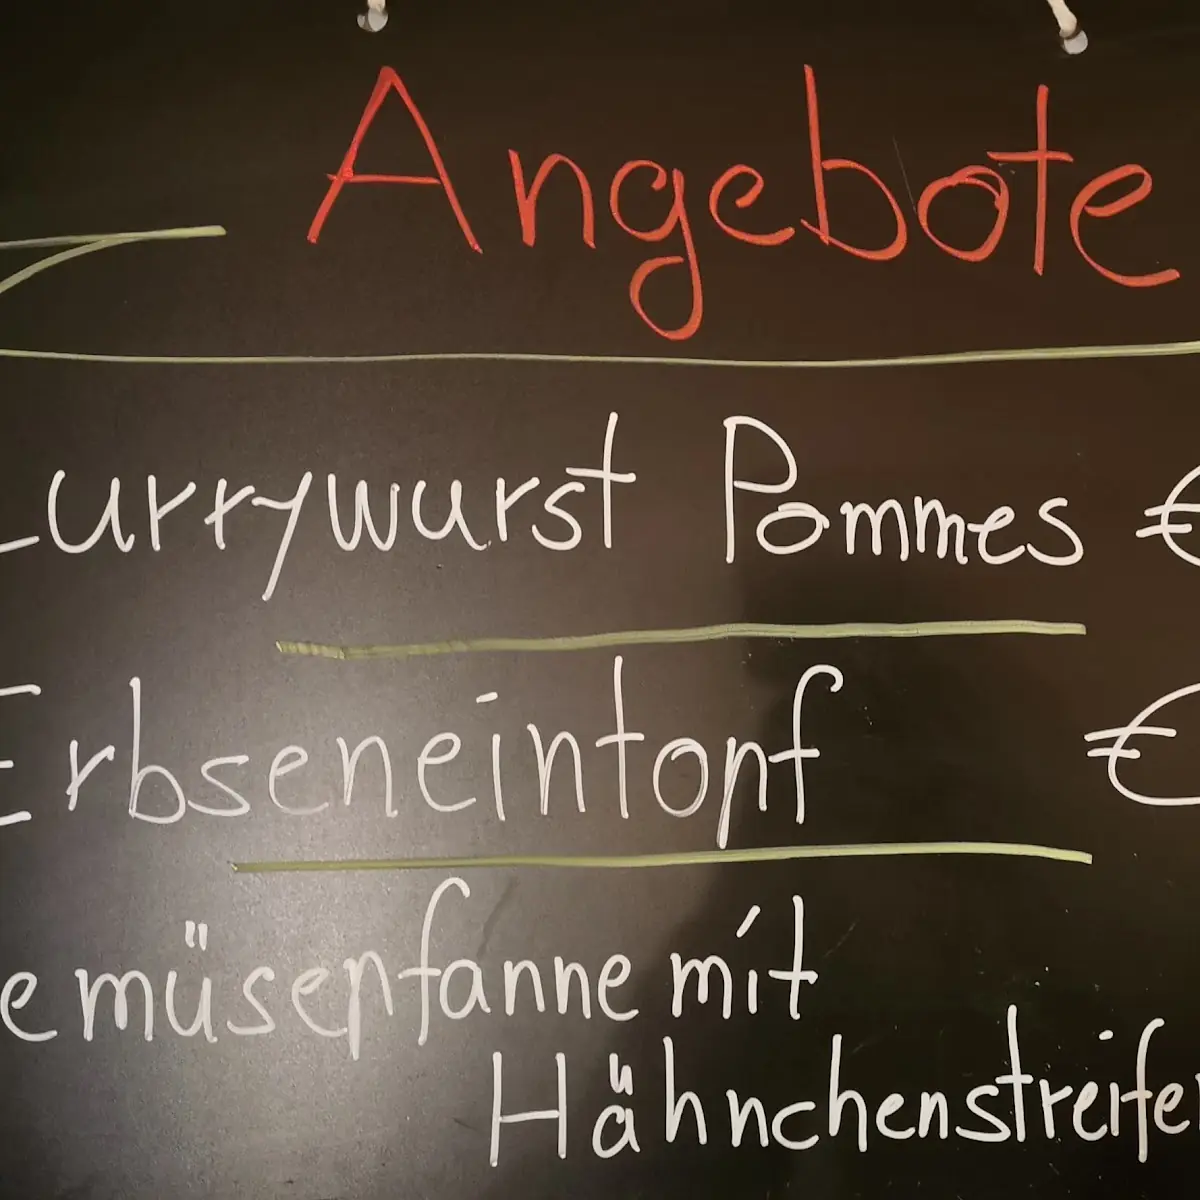 Angebote
Currywurst Pommes €
Erbseneintopf €
emüsepfanne mit
Hähnchenstreife